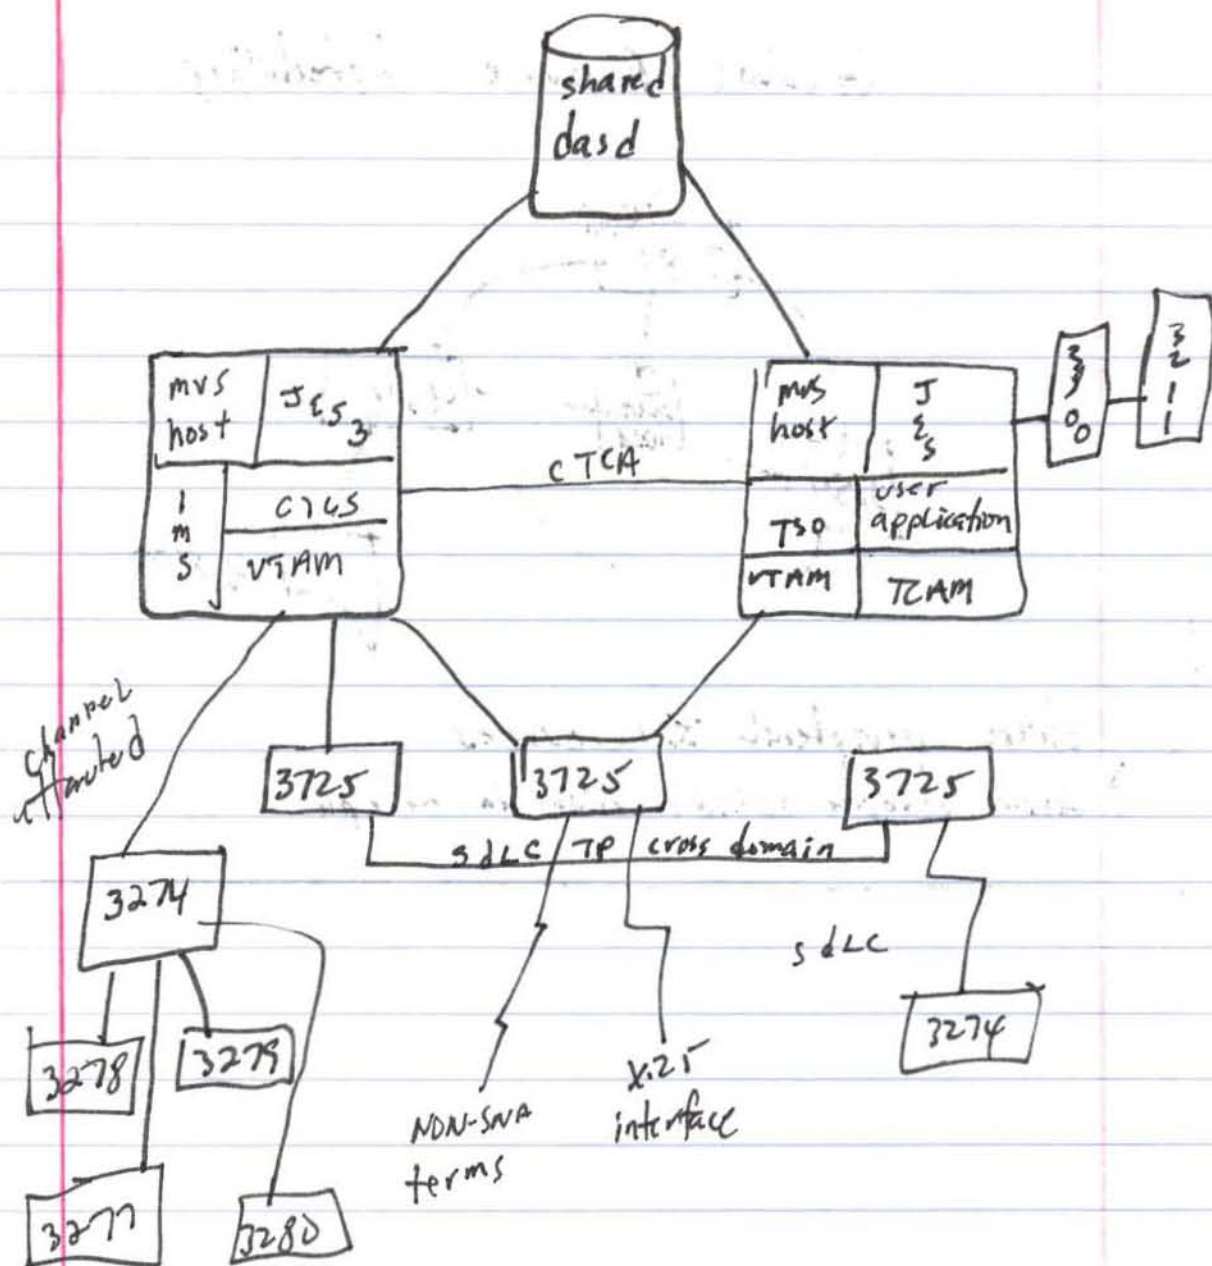 shared
dasd
mvs
host
JES3
IMS
CICS
VTAM
CTCA
mvs
host
JES
TSO
user
application
VTAM
TCAM
3211
channel
attached
3725
3725
3725
sdLC TP cross domain
3274
sdLC
3274
3278
3279
3277
3280
NON-SNA
terms
X.25
interface